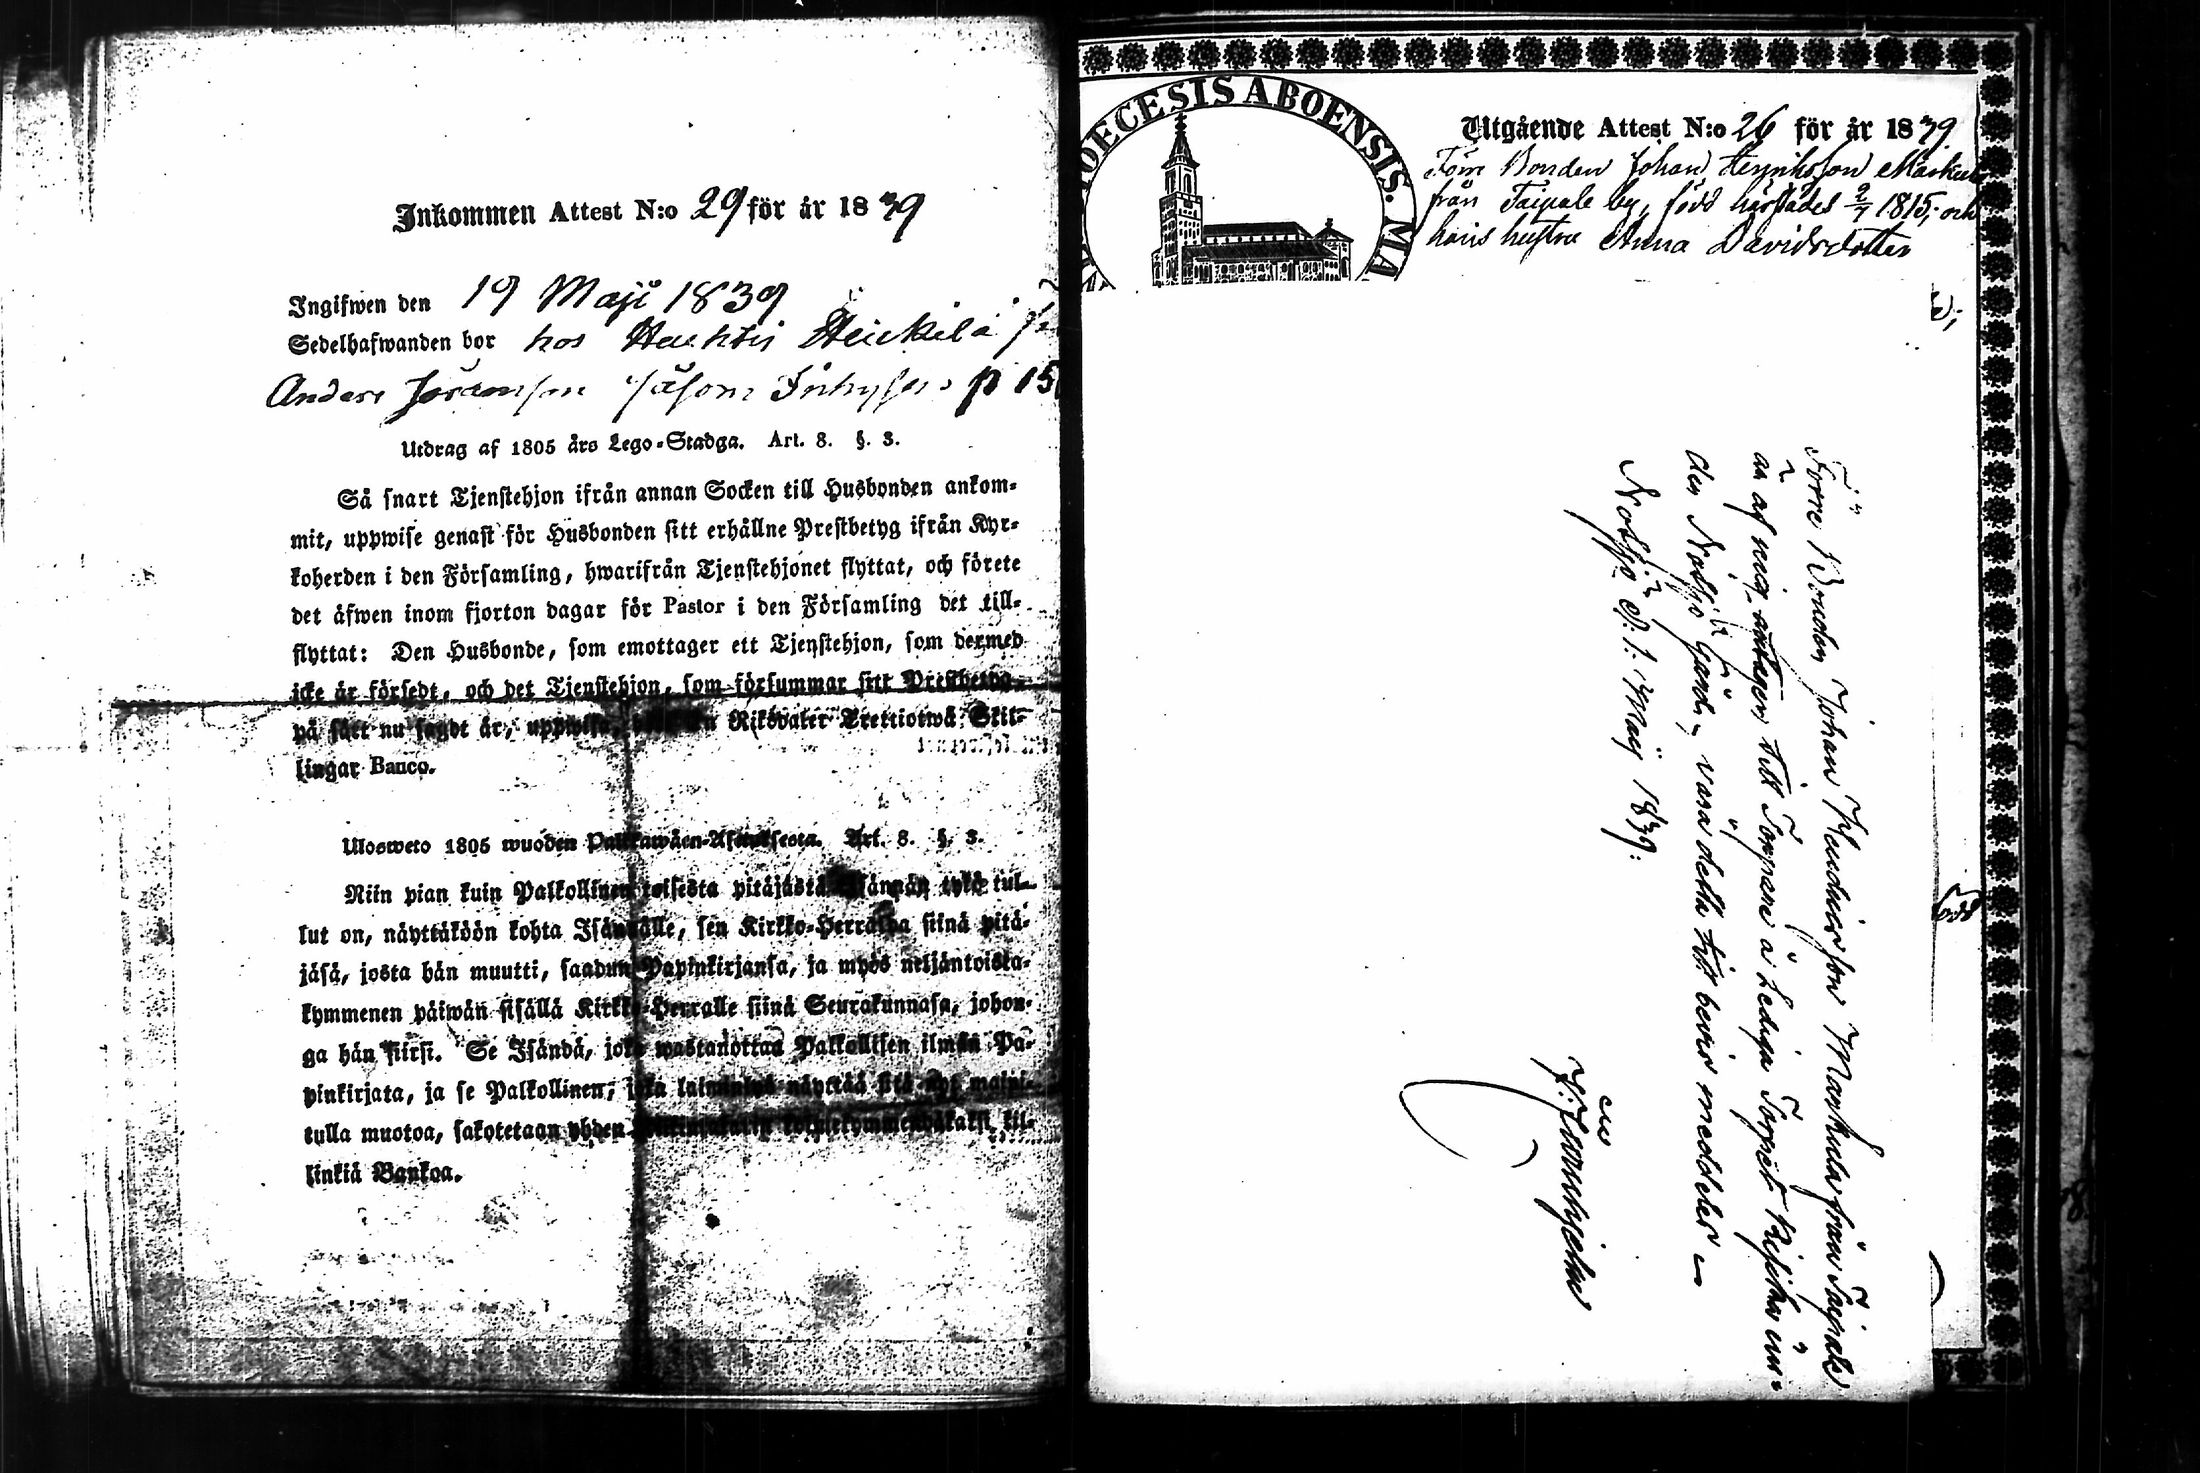 Inkommen Attest N:o 29 för år 1839
Ingifwen den 19 Maji 1839
Sedelhafwanden bor hos Heickilä
Anders Göransson såsom Inhyses p 15
Utdrag af 1805 års Lego-Stadga. Art. 8. §. 3.
Så snart Tjenstehjon ifrån annan Socken till Husbonden ankom-
mit, uppwise genast för Husbonden sitt erhållne Prestbetyg ifrån Kyr-
koherden i den Församling, hwarifrån Tjenstehjonet flyttat, och förete
det äfwen inom fjorton dagar för Pastor i den Församling det till-
flyttat: Den Husbonde, som emottager ett Tjenstehjon, som dermed
icke är försedt, och det Tjenstehjon, som försummar sitt Prestbetyg
på sätt nu sagdt är, uppwisa, Riksdaler Trettiotwå Skil-
lingar Banco.
Ulosweto 1805 wuoden Palkkawäen-Asetuksesta. Art. 8. §. 3.
Niin pian kuin Palkollinen toisesta pitäjästä Isännän tykö tul-
lut on, näyttäköön kohta Isännälle, sen Kirkko-Herralda siinä pitä-
jäsä, josta hän muutti, saadun Papinkirjansa, ja myös neljäntoista-
kymmenen päiwän sisällä Kirkko-Herralle siinä Seurakunnasa, johon-
ga hän siirsi. Se Isändä, joka wastanottaa Palkollisen ilman Pa-
pinkirjata, ja se Palkollinen, joka laiminlyö näyttää sitä nyt maini-
tulla muotoa, sakotetaan yhden kil-
linkiä Bankoa.
DIOECESIS ABOENSIS. MA
Utgående Attest N:o 26 för år 1839
Förre Bonden Johan Henriksson Markula
från Taipale by, född härstädes 2/7 1815, och
hans hustru Anna Davidsdotter
Förre Bonden Johan Hendricsson Markula från Taipale
är af mig antagen till Torpare å Lediga Torpet un-
der Nolsjö Gård, vara detta till bevis meddelar
Nolsjö d. 1 Maij 1839.